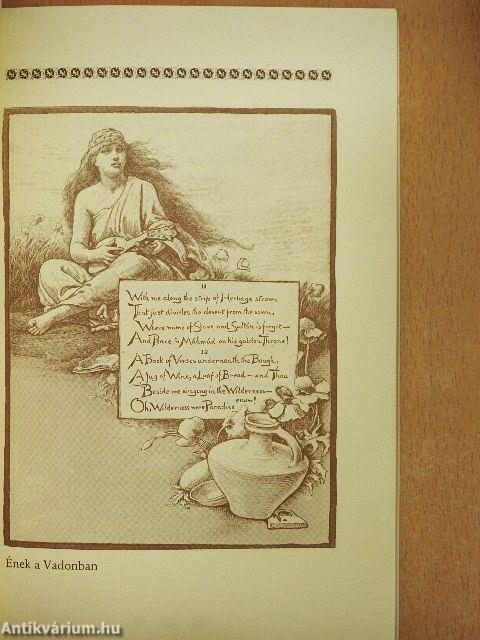 11
With me along the strip of Herbage strown
That just divides the desert from the sown,
Where name of Slave and Sultán is forgot—
And Peace to Máhmúd on his golden Throne!
12
A Book of Verses underneath the Bough,
A Jug of Wine, a Loaf of Bread—and Thou
Beside me singing in the Wilderness—
Oh, Wilderness were Paradise enow!
Ének a Vadonban
Antikvárium.hu